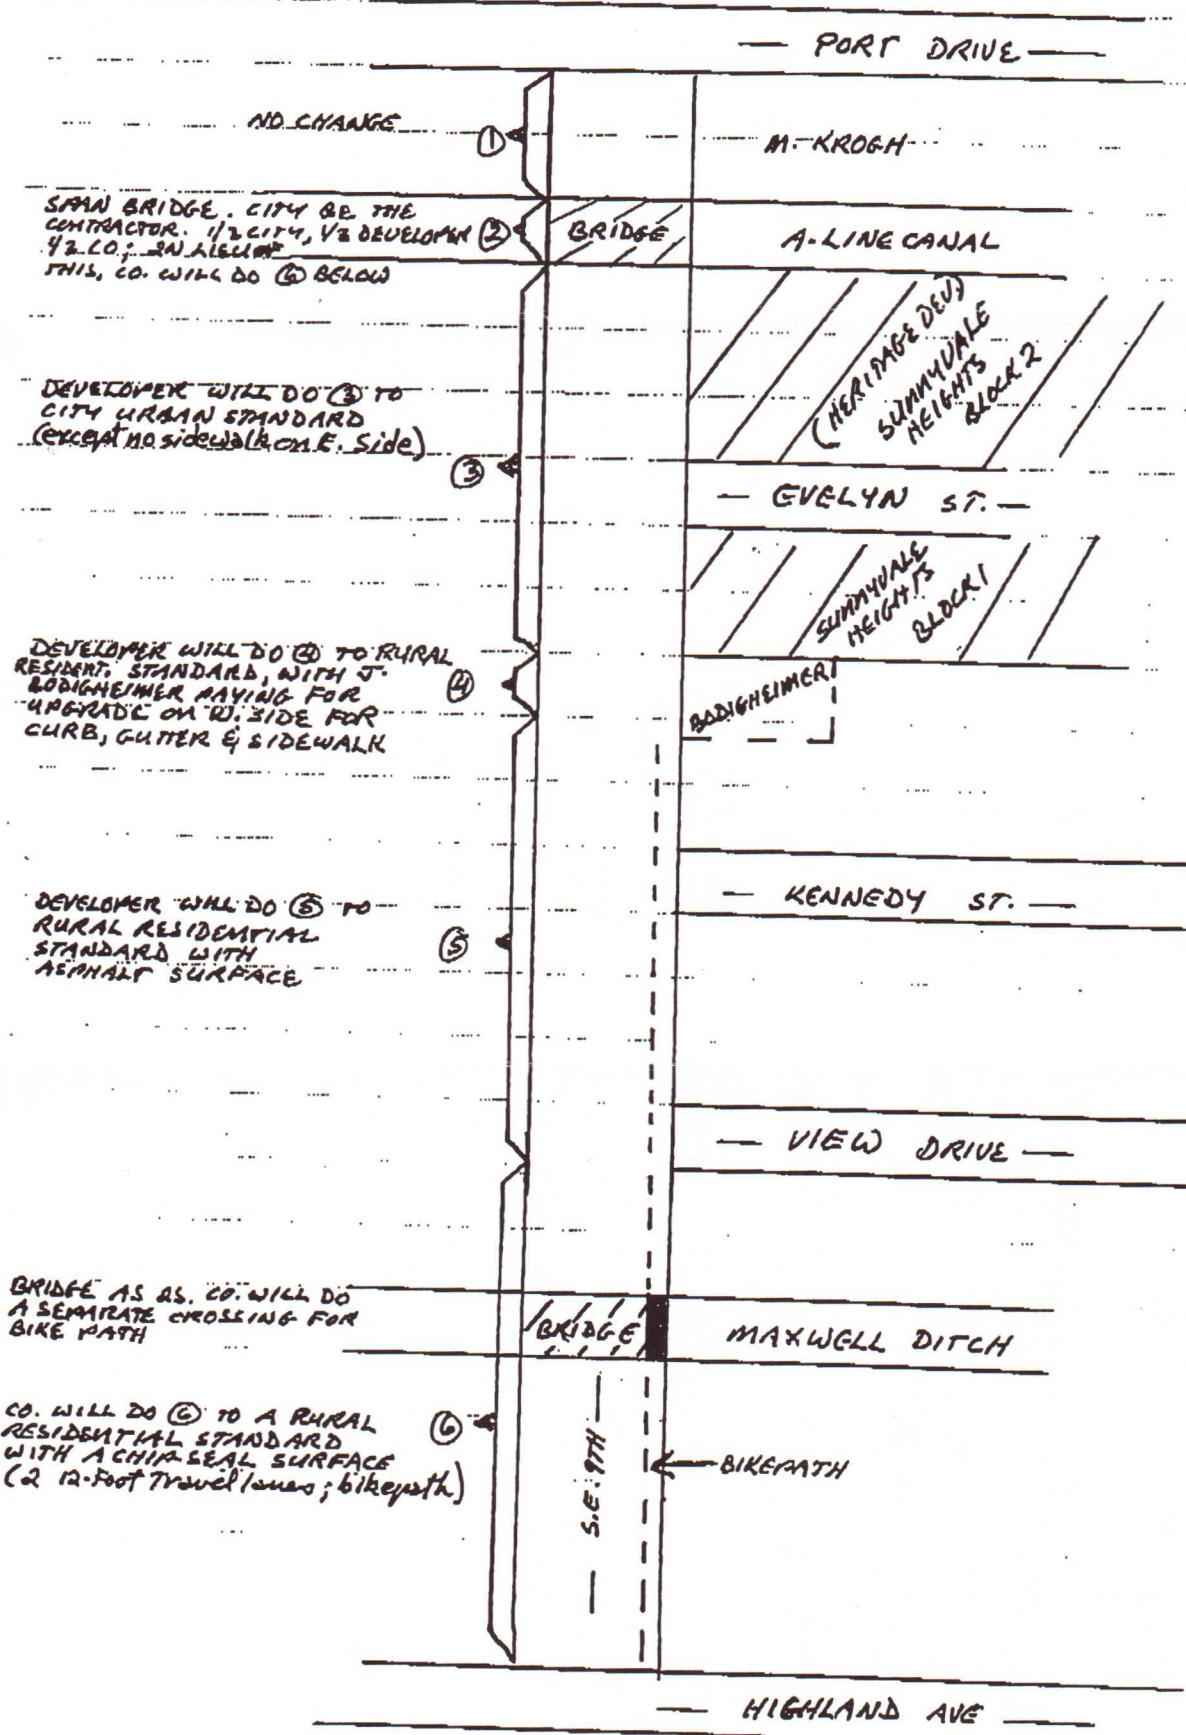 — PORT DRIVE —
NO CHANGE
①
M. KROGH
SPAN BRIDGE. CITY BE THE
CONTRACTOR. 1/3 CITY, 1/3 DEVELOPER
1/3 CO; IN LIEU OF
THIS, CO. WILL DO ⑥ BELOW
②
BRIDGE
A-LINE CANAL
(HERITAGE DEV)
SUNNYVALE
HEIGHTS
BLOCK 2
DEVELOPER WILL DO ③ TO
CITY URBAN STANDARD
(except no sidewalk on E. Side)
③
— EVELYN ST. —
SUNNYVALE
HEIGHTS
BLOCK 1
DEVELOPER WILL DO ④ TO RURAL
RESIDENT. STANDARD, WITH J.
BODIGHEIMER PAYING FOR
UPGRADE ON W. SIDE FOR
CURB, GUTTER & SIDEWALK
④
BODIGHEIMER
— KENNEDY ST. —
DEVELOPER WILL DO ⑤ TO
RURAL RESIDENTIAL
STANDARD WITH
ASPHALT SURFACE
⑤
— VIEW DRIVE —
BRIDGE AS IS. CO. WILL DO
A SEPARATE CROSSING FOR
BIKE PATH
BRIDGE
MAXWELL DITCH
CO. WILL DO ⑥ TO A RURAL
RESIDENTIAL STANDARD
WITH A CHIP SEAL SURFACE
(2 12-Foot Travel lanes; bikepath)
⑥
— S.E. 9TH —
BIKEPATH
— HIGHLAND AVE —